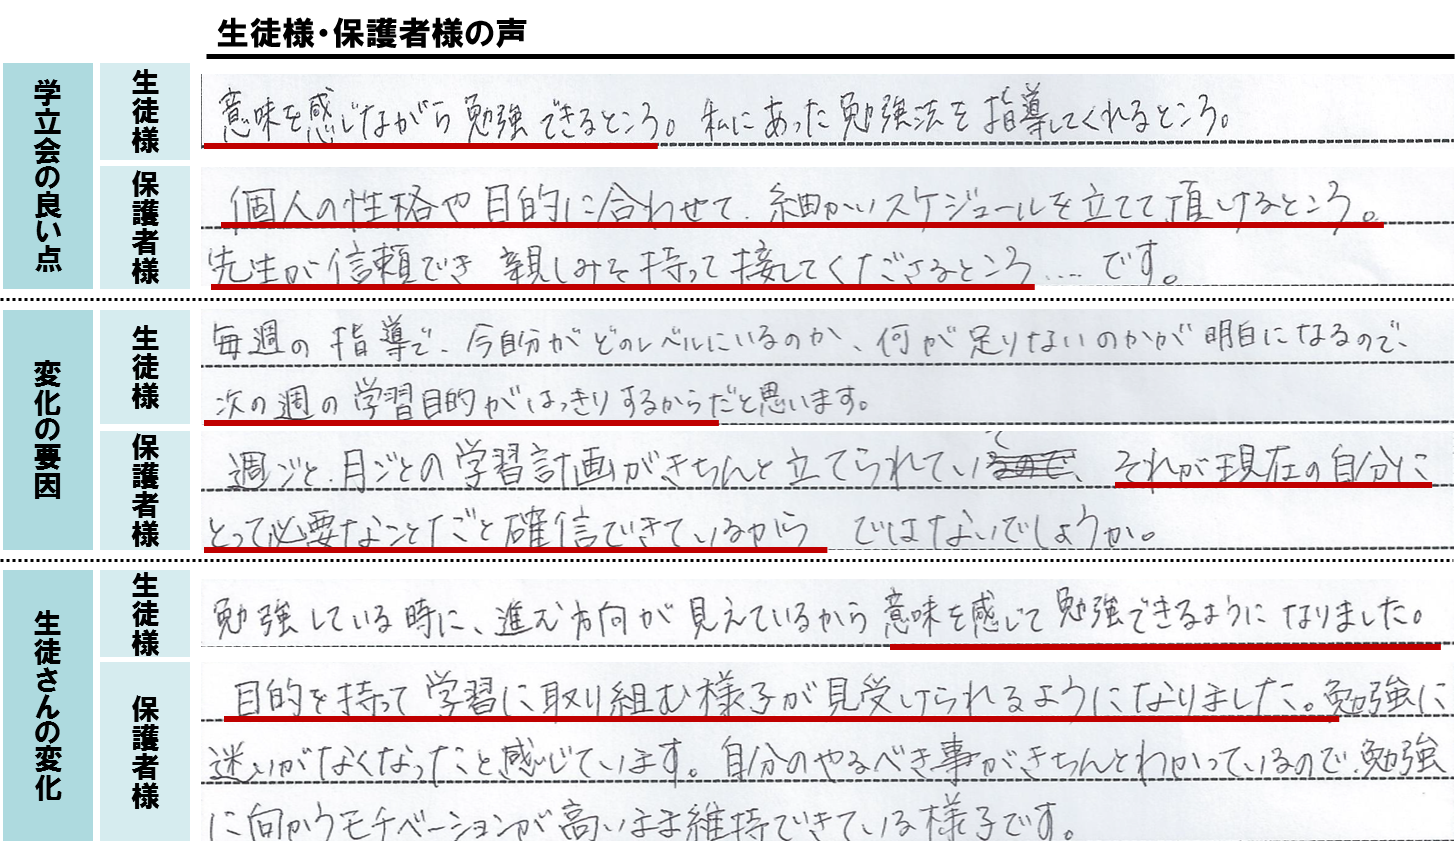 生徒様・保護者様の声
学立会の良い点
生徒様
意味を感じながら勉強できるところ。私にあった勉強法を指導してくれるところ。
保護者様
個人の性格や目的に合わせて、細かいスケジュールを立てて頂けるところ。
先生が信頼でき 親しみを持って接してくださるところ....です。
変化の要因
生徒様
毎週の指導で、今自分がどのレベルにいるのか、何が足りないのかが明白になるので、
次の週の学習目的がはっきりするからだと思います。
保護者様
週ごと、月ごとの学習計画がきちんと立てられてい、それが現在の自分に
とって必要なことだと確信できているから ではないでしょうか。
生徒さんの変化
生徒様
勉強している時に、進む方向が見えているから意味を感じて勉強できるようになりました。
保護者様
目的を持って学習に取り組む様子が見受けられるようになりました。勉強に
迷いがなくなったと感じています。自分のやるべき事がきちんとわかっているので、勉強
に向かうモチベーションが高いまま維持できている様子です。